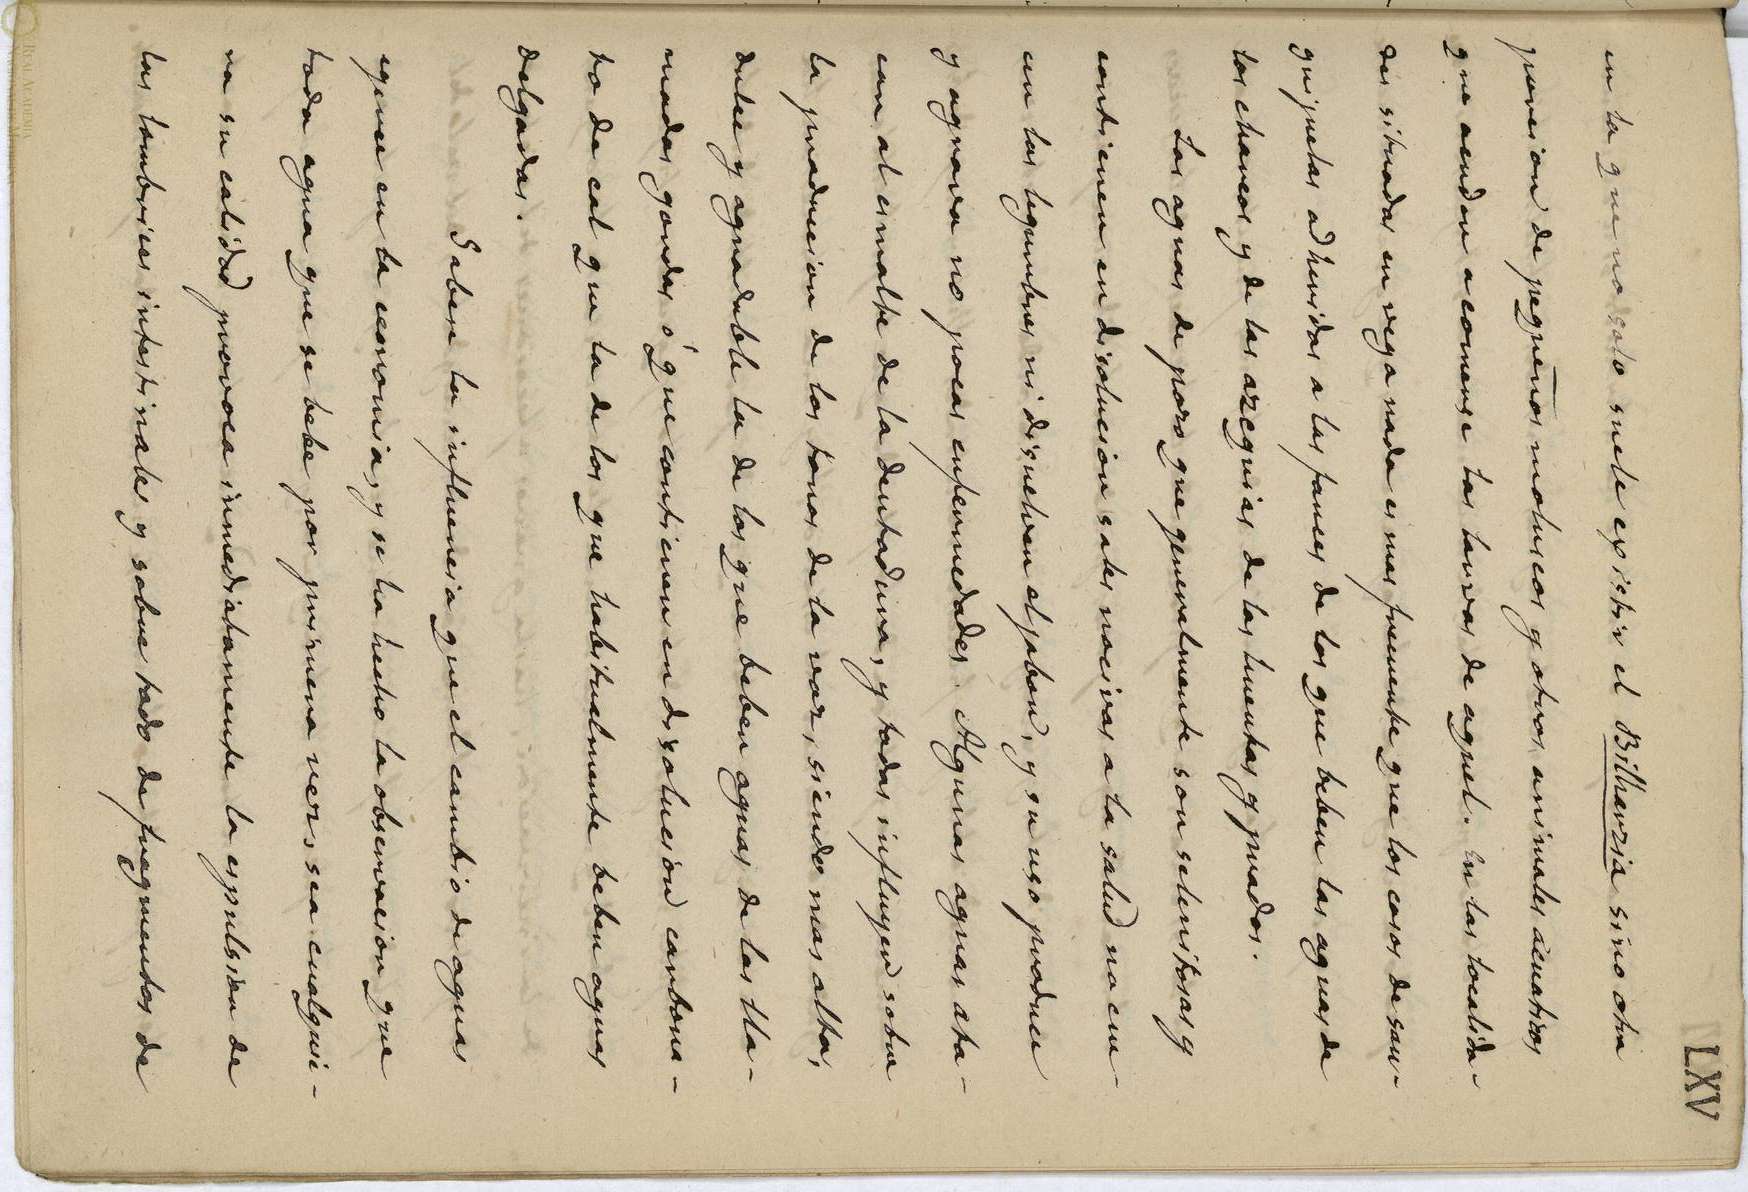 LXV
en la que no solo suele existir el Bilharzia sino otra
porcion de pequeños moluscos y otros animales acuaticos
que acuden a comerse las larvas de aquel. En las localida-
des situadas en reganada es mas frecuente que los casos de san-
guijuelas adheridas a las fauces de los que beben las aguas de
los charcos y de las azequias de las huertas y prados.
Las aguas de pozo que generalmente son selenitosas y
contienen en disolucion sales nocivas a la salud no cue-
cen las legumbres ni disuelven el jabon, y su uso produce
y agrava no pocas enfermedades. Algunas aguas ata-
can al esmalte de la dentadura, y todas influyen sobre
la produccion de los tonos de la voz, siendo mas alta,
dulce y agradable la de los que beben aguas de las lla-
madas gordas ó que contienen en disolucion carbona-
to de cal que la de los que habitualmente beben aguas
delgadas.
Sabese la influencia que el cambio de aguas
egerce en la economia, y se ha hecho la observacion que
toda agua que se bebe por primera vez sea cualquie-
ra su calidad provoca inmediatamente la espulsion de
las lombrices intestinales y sobre todo de fragmentos de